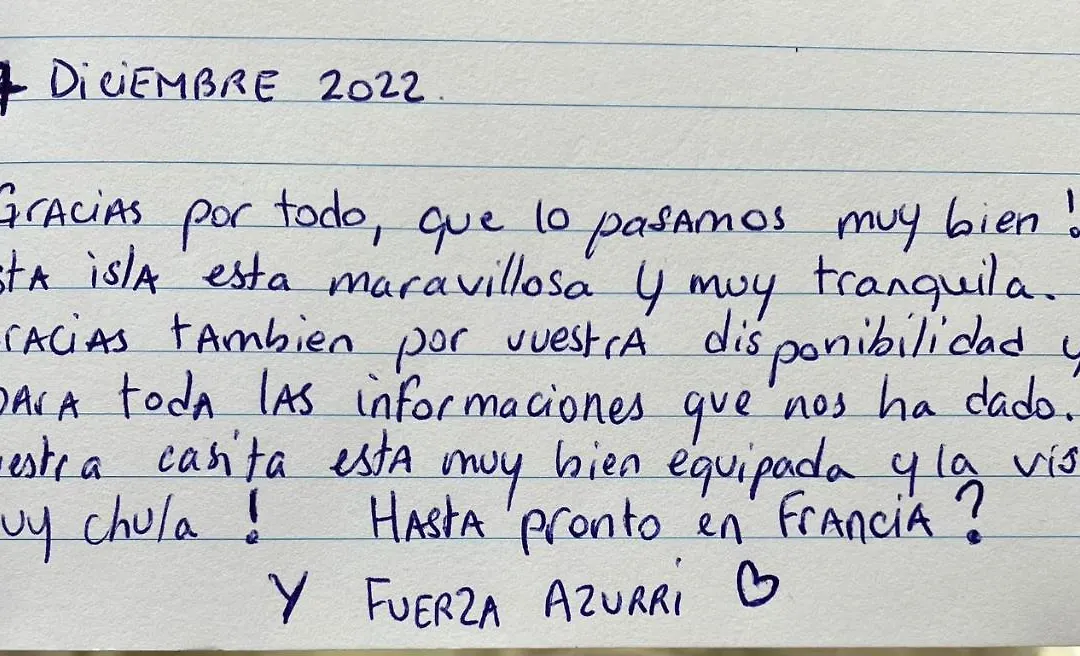 DiciEMBRE 2022.
GrAciAS por todo, que lo pasAmos muy bien !
stA islA esta maravillosa y muy tranquila.
rAciAS tAmbien por vuestrA disponibilidad y
parA todA lAS informaciones que nos ha dado.
estra casita estA muy bien equipada y la vis
uy chula ! HAStA pronto en FrAnciA ?
Y FUERZA AZURRi ♡